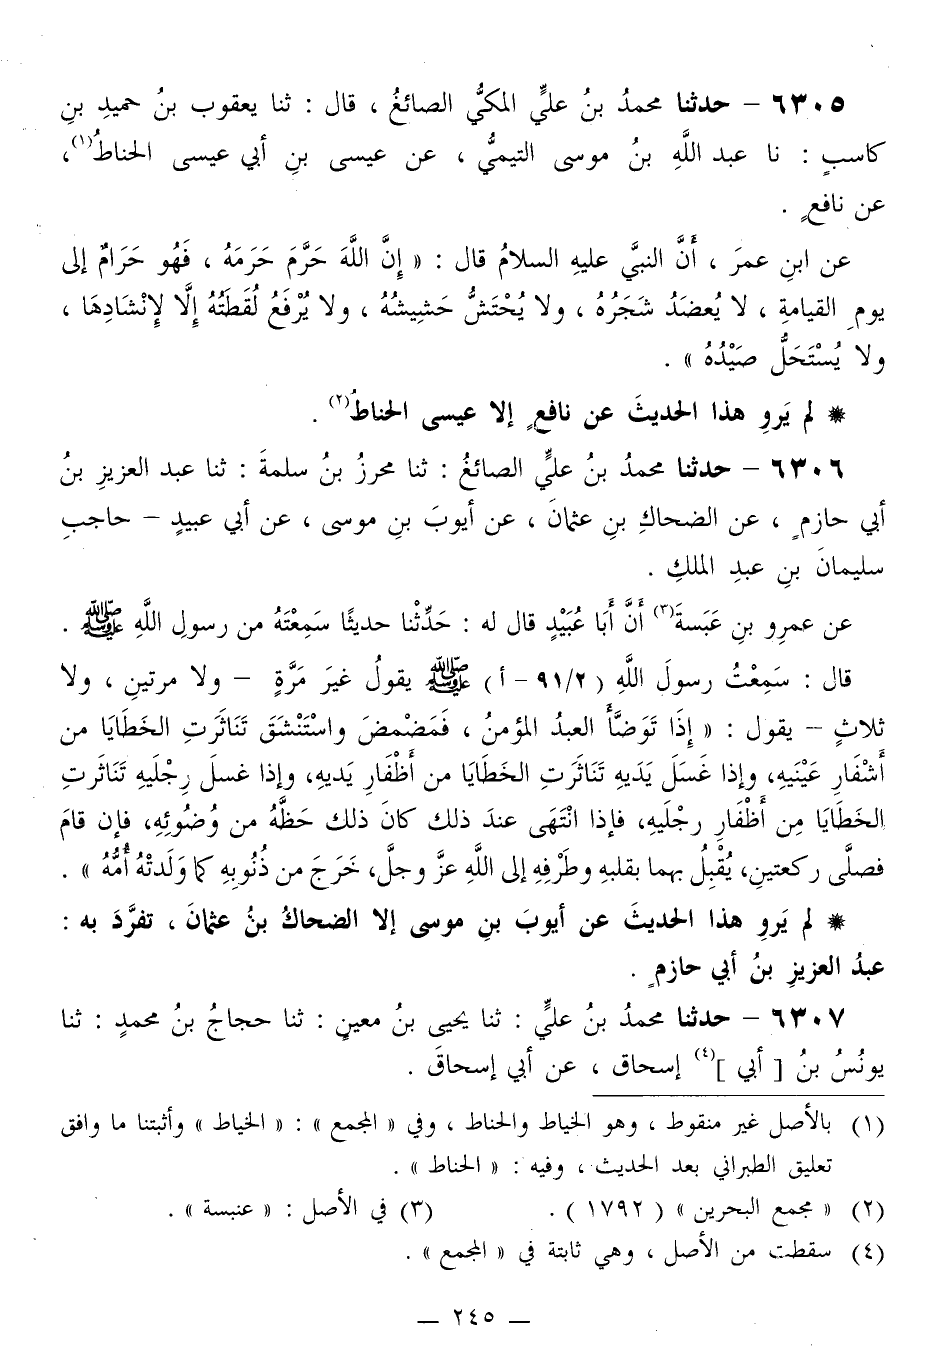 ٦٣٠٥ – حدثنا محمدُ بنُ عليٍّ المكيُّ الصائغُ ، قال : ثنا يعقوب بنُ حميدِ بنِ
كاسبٍ : نا عبد اللَّهِ بنُ موسى التيميُّ ، عن عيسى بنِ أبي عيسى الحناطُ(١)،
عن نافعٍ .
عن ابنِ عمرَ ، أَنَّ النبيَّ عليهِ السلامُ قال : « إِنَّ اللَّهَ حَرَّمَ حَرَمَهُ ، فَهُو حَرَامٌ إلى
يومِ القيامةِ ، لا يُعضَدُ شَجَرُهُ ، ولا يُحْتَشُّ حَشِيشُهُ ، ولا يُرْفَعُ لُقَطَتُهُ إِلَّا لِإنْشَادِهَا ،
ولا يُسْتَحَلُّ صَيْدُهُ » .
* لم يَروِ هذا الحديثَ عن نافعٍ إلا عيسى الحناطُ(٢) .
٦٣٠٦ – حدثنا محمدُ بنُ عليٍّ الصائغُ : ثنا محرزُ بنُ سلمةَ : ثنا عبد العزيزِ بنُ
أبي حازمٍ ، عن الضحاكِ بنِ عثمانَ ، عن أيوبَ بنِ موسى ، عن أبي عبيدٍ – حاجبِ
سليمانَ بنِ عبدِ الملكِ .
عن عمرِو بنِ عَبَسةَ(٣) أَنَّ أَبَا عُبَيْدٍ قال له : حَدِّثْنا حديثًا سَمِعْتَهُ من رسولِ اللَّهِ ﷺ .
قال : سَمِعْتُ رسولَ اللَّهِ ( ٩١/٢ – أ ) ﷺ يقولُ غيرَ مَرَّةٍ – ولا مرتينِ ، ولا
ثلاثٍ – يقول : « إِذَا تَوَضَّأَ العبدُ المؤمنُ ، فَمَضْمضَ واسْتَنْشَقَ تَنَاثَرَتِ الخَطَايَا من
أَشْفَارِ عَيْنَيهِ، وإذا غَسَلَ يَدَيهِ تَنَاثَرَتِ الخَطَايَا من أَظْفَارِ يَديهِ، وإذا غسلَ رِجْليهِ تَنَاثَرتِ
الخَطَايَا مِن أَظْفَارِ رجْلَيهِ، فَإذا انْتَهَى عندَ ذلك كانَ ذلك حَظَّهُ من وُضُوئِهِ، فإن قامَ
فصلَّى ركعتينِ، يُقْبِلُ بهما بقلبهِ وطَرْفِهِ إلى اللَّهِ عزَّ وجلَّ، خَرَجَ من ذُنُوبِهِ كما وَلَدتْهُ أُمُّهُ » .
* لم يَروِ هذا الحديثَ عن أيوبَ بنِ موسى إلا الضحاكُ بنُ عثمانَ ، تفرَّدَ به :
عبدُ العزيزِ بنُ أبي حازمٍ .
٦٣٠٧ – حدثنا محمدُ بنُ عليٍّ : ثنا يحيى بنُ معينٍ : ثنا حجاجُ بنُ محمدٍ : ثنا
يونُسُ بنُ [ أبي ](٤) إسحاق ، عن أبي إسحاقَ .
(١) بالأصل غير منقوط ، وهو الخياط والحناط ، وفي « المجمع » : « الخياط » وأثبتنا ما وافق
تعليق الطبراني بعد الحديث ، وفيه : « الحناط » .
(٢) « مجمع البحرين » ( ١٧٩٢ ) . (٣) في الأصل : « عنبسة » .
(٤) سقطت من الأصل ، وهي ثابتة في « المجمع » .
– ٢٤٥ –